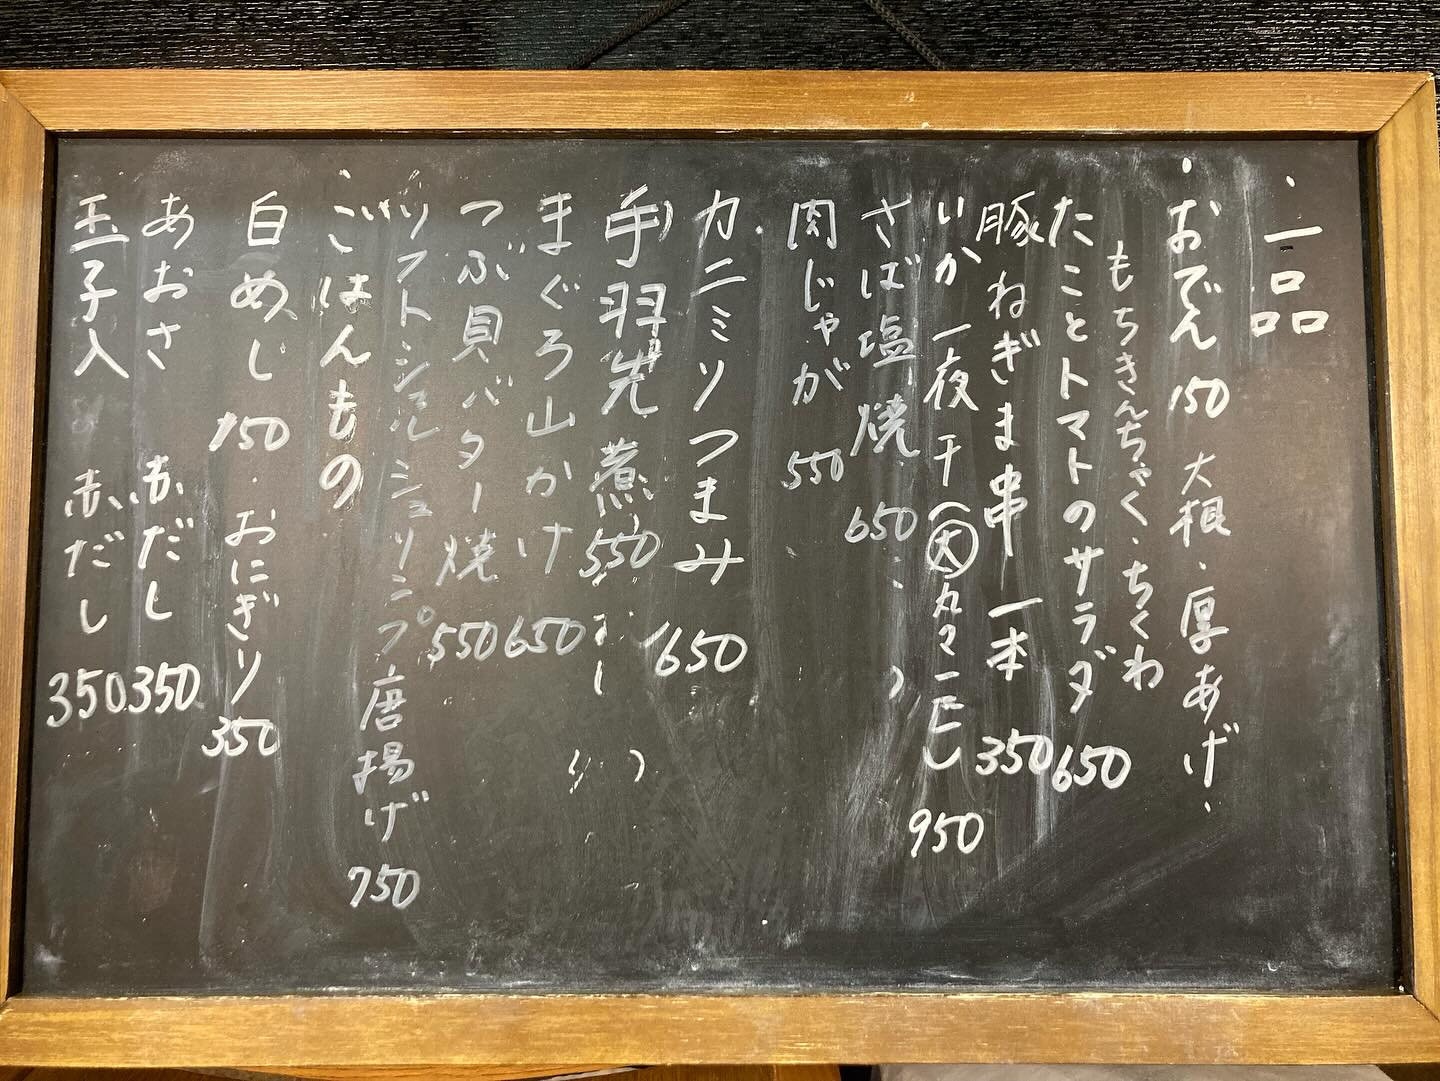 一品
おでん 150 大根・厚あげ・
もちきんちゃく・ちくわ
たことトマトのサラダ 650
豚ねぎま串 一本 350
いか一夜干 大 丸々一匹 950
さば塩焼 650
肉じゃが 550
カニミソつまみ 650
手羽先煮 550
まぐろ山かけ 650
つぶ貝バター焼 550
ソフトシェルシュリンプ唐揚げ 750
ごはんもの
白めし 150・おにぎり 350
あおさ 赤だし 350
玉子入 赤だし 350